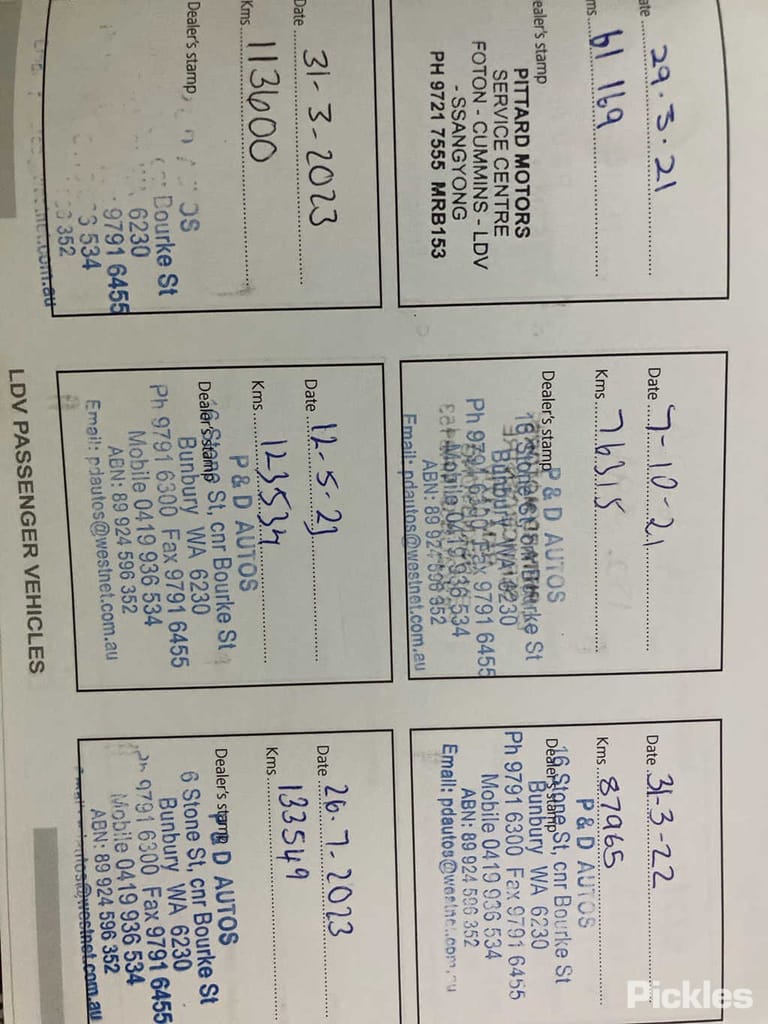 Date 29.3.21
Kms 61 169
Dealer's stamp
PITTARD MOTORS
SERVICE CENTRE
FOTON - CUMMINS - LDV
- SSANGYONG
PH 9721 7555 MRB153
Date 7-10-21
Kms 76315
Dealer's stamp
P & D AUTOS
16 Stone St, cnr Bourke St
Bunbury WA 6230
Ph 9791 6300 Fax 9791 6455
Mobile 0419 936 534
ABN: 89 924 596 352
Email: pdautos@westnet.com.au
Date 31-3-22
Kms 87965
Dealer's stamp
P & D AUTOS
16 Stone St, cnr Bourke St
Bunbury WA 6230
Ph 9791 6300 Fax 9791 6455
Mobile 0419 936 534
ABN: 89 924 596 352
Email: pdautos@westnet.com.au
Date 31-3-2023
Kms 113600
Dealer's stamp
OS
Bourke St
6230
9791 6455
534
352
.com.au
Date 12-5-23
Kms 123534
Dealer's stamp
P & D AUTOS
16 Stone St, cnr Bourke St
Bunbury WA 6230
Ph 9791 6300 Fax 9791 6455
Mobile 0419 936 534
ABN: 89 924 596 352
Email: pdautos@westnet.com.au
Date 26.7.2023
Kms 133549
Dealer's stamp
P & D AUTOS
6 Stone St, cnr Bourke St
Bunbury WA 6230
Ph 9791 6300 Fax 9791 6455
Mobile 0419 936 534
ABN: 89 924 596 352
@westnet.com.au
LDV PASSENGER VEHICLES
Pickles